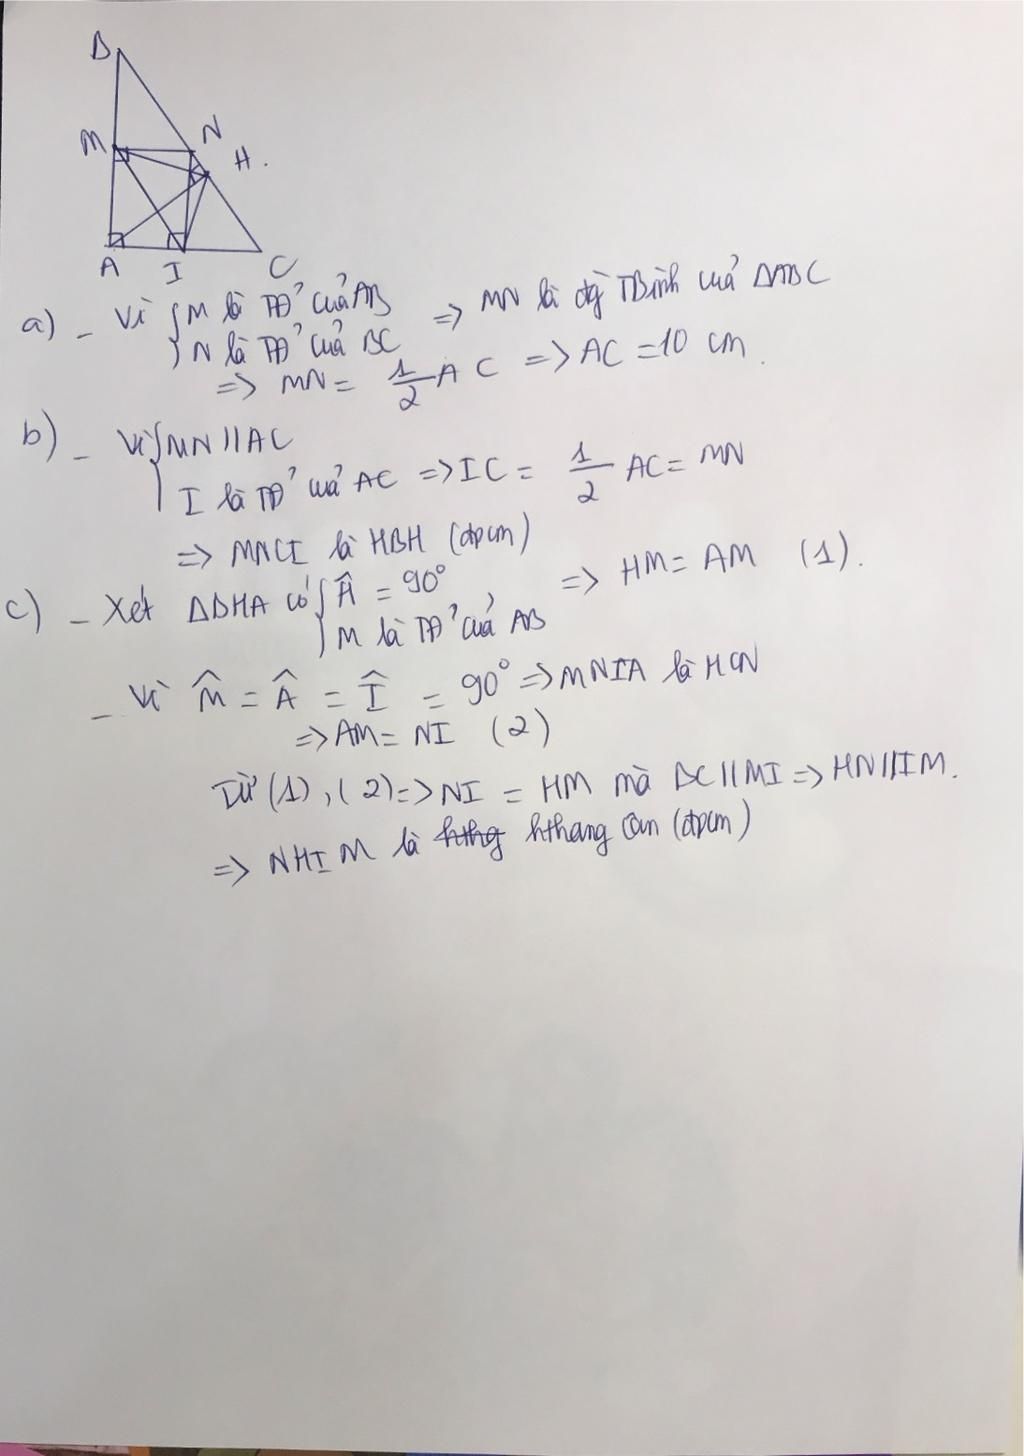 B
M
N
H.
A
I
C
a) - Vì { M là TĐ' của AB
N là TĐ' của BC
=> MN là đg TBình của ΔABC
=> MN = 1/2 AC => AC = 10 cm.
b) - Vì { MN // AC
I là TĐ' của AC => IC = 1/2 AC = MN
=> MNCI là HBH (đpcm)
c) - Xét ΔBHA có { Â = 90°
M là TĐ' của AB
=> HM = AM (1).
- Vì M̂ = Â = Î = 90° => MNIA là HCN
=> AM = NI (2)
Từ (1), (2) => NI = HM mà BC // MI => HN // IM.
=> NHIM là hthang cân (đpcm)